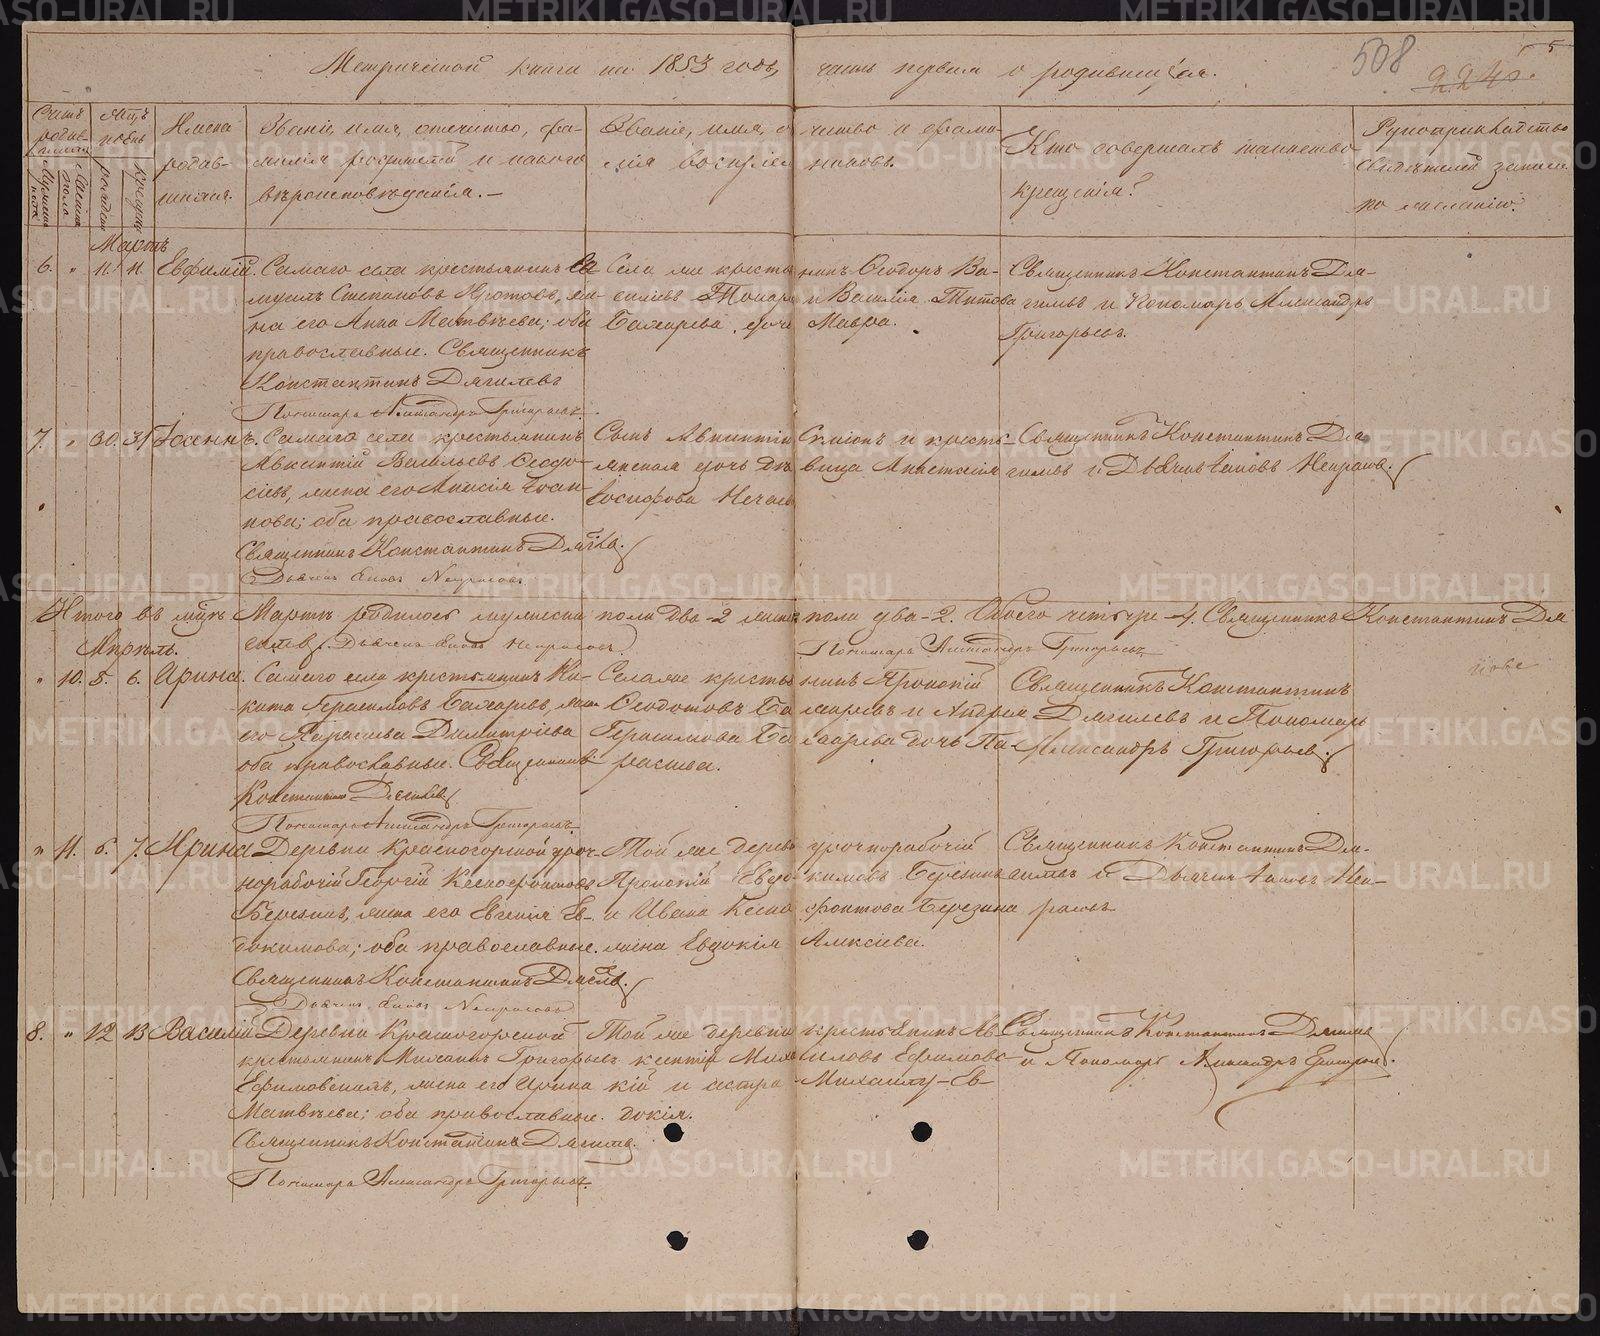 Метрической книги на 1853 годъ, часть первая о родившихся.
508
5
Счетъ родив-
Имена родив-
шихся.
Званіе, имя, отчество, фа-
милія родителей и какого
вѣроисповѣданія.
Званіе, имя, отчество и фами-
лія воспріемниковъ.
Кто совершалъ таинство
крещенія?
Рукоприкладство
свидѣтелей записи
по желанію.
Мартъ
6. " 11. 11. Евфимій. Самаго села крестьянинъ Са-
муилъ Степановъ Кротовъ, же-
на его Анна Матвѣева; оба
православные. Священникъ
Константинъ Дягилевъ
Пономарь Александръ Григорьевъ.
Села же крестьянинъ Ѳеодоръ Ва-
силіевъ Токарь и Василія Титова
дочь Мавра.
Священникъ Константинъ Дя-
гилевъ и Пономарь Александръ
Григорьевъ.
7. " 30. 31 Іоаннъ. Самаго села крестьянинъ
Авксентій Васильевъ Ѳеодо-
сіевъ, жена его Анисія Іоан-
нова; оба православные.
Священникъ Константинъ Дягилевъ.
Дьячекъ Іаковъ Некрасовъ
Сынъ Авксентій и кресть-
янская дочь дѣвица Анастасія
Іосифова
Священникъ Константинъ Дя-
гилевъ и Дьячекъ Іаковъ Некрасовъ.
Итого въ м-цѣ Мартѣ родилось мужеска пола два - 2 женска пола два - 2. Обоего четыре - 4. Священникъ Константинъ Дя-
гилевъ. Дьячекъ Іаковъ Некрасовъ. Пономарь Александръ Григорьевъ.
Апрѣль.
" 10. 5. 6. Ирина. Самаго села крестьянинъ Ни-
кита Герасимовъ жена
его Параскева Димитріева
оба православные. Священникъ
Константинъ Дягилевъ
Пономарь Александръ Григорьевъ
Села же крестьянинъ Прокопій
Ѳеодотовъ и Андрея
Герасимова дочь Па-
раскева.
Священникъ Константинъ
Дягилевъ и Пономарь
Александръ Григорьевъ.
" 11. 6. 7. Ирина Деревни Красногорской уроч-
норабочій Георгій Ксенофонтовъ
Березинъ, жена его Евгенія Ев-
докимова; оба православные.
Священникъ Константинъ Дягилевъ.
Дьячекъ Іаковъ Некрасовъ
Той же деревни урочнорабочій
Прокопій Евдокимовъ Березинъ
и Ивана Ксенофонтова Березина
жена Евдокія Алексіева.
Священникъ Константинъ Дя-
гилевъ и Дьячекъ Іаковъ Нек-
расовъ
8. " 12 13 Василій Деревни Красногорской
крестьянинъ Михаилъ Григорьевъ
Ефимовскихъ, жена его Ирина
Матвѣева; оба православные.
Священникъ Константинъ Дягилевъ.
Пономарь Александръ Григорьевъ.
Той же деревни крестьянинъ Ав-
ксентій Михаиловъ Ефимовс-
кій и сестра Михаилу - Ев-
докія.
Священникъ Константинъ Дягилевъ
и Пономарь Александръ Григорьевъ.
METRIKI.GASO-URAL.RU